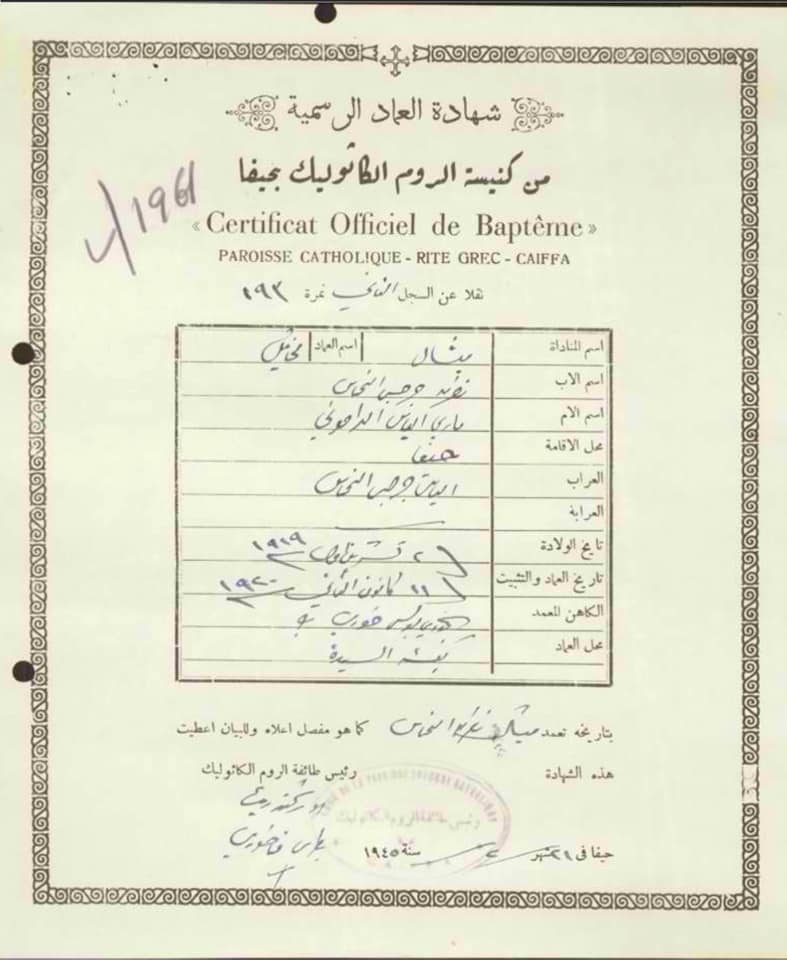 شهادة العماد الرسمية
من كنيسة الروم الكاثوليك بحيفا
1961
«Certificat Officiel de Baptême»
PAROISSE CATHOLIQUE - RITE GREC - CAIFFA
نقلا عن السجل الثاني نمرة ١٩٣
اسم المناداة ميشال اسم العماد مخايل
اسم الاب جرجس النحاس
اسم الام ماري الياس
محل الاقامة حيفا
العراب الياس جرجس النحاس
العرابة
تاريخ الولادة ٢ تشرين اول ١٩١٩
تاريخ العماد والتثبيت ١١ كانون الثاني ١٩٢٠
الكاهن المعمد الخوري خوري
محل العماد كنيسة السيدة
بتاريخه تعمد ميشال النحاس كما هو مفصل اعلاه وللبيان اعطيت
هذه الشهادة رئيس طائفة الروم الكاثوليك
حيفا في شهر سنة ١٩٤٥